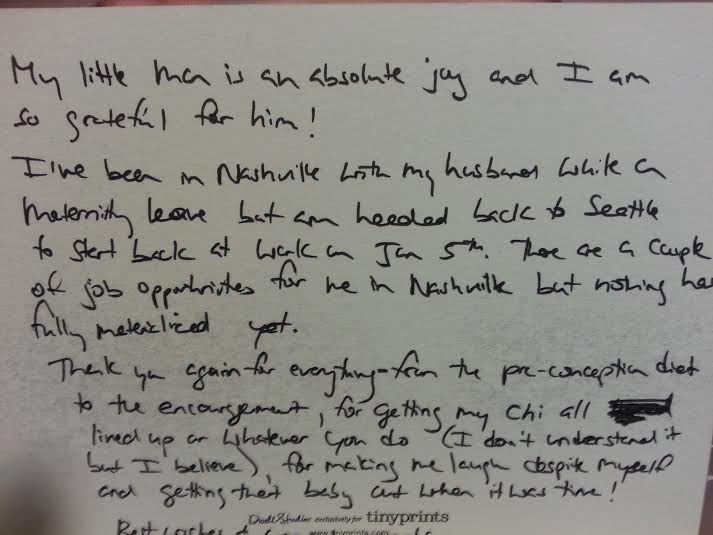 My little man is an absolute joy and I am
so grateful for him!
I've been in Nashville with my husband while on
maternity leave but am headed back to Seattle
to start back at work on Jan 5th. There are a couple
of job opportunities for me in Nashville but nothing has
fully materialized yet.
Thank you again for everything - from the pre-conception diet
to the encouragement, for getting my chi all
lined up or whatever you do (I don't understand it
but I believe), for making me laugh despite myself
and getting that baby out when it was time!
DwellStudio exclusively for tinyprints
Best wishes
www.tinyprints.com